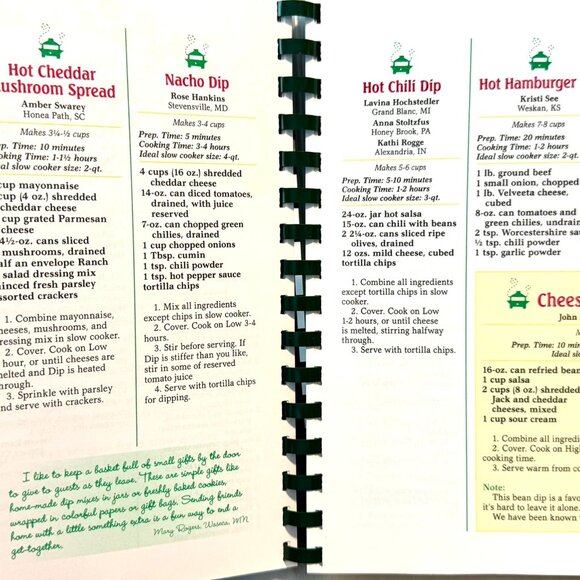 Hot Cheddar
Mushroom Spread
Amber Swarey
Honea Path, SC
Makes 3¼-½ cups
Prep. Time: 10 minutes
Cooking Time: 1-1½ hours
Ideal slow cooker size: 2-qt.
cup mayonnaise
cup (4 oz.) shredded
cheddar cheese
cup grated Parmesan
cheese
4½-oz. cans sliced
mushrooms, drained
half an envelope Ranch
salad dressing mix
minced fresh parsley
assorted crackers
1. Combine mayonnaise,
cheeses, mushrooms, and
dressing mix in slow cooker.
2. Cover. Cook on Low
hour, or until cheeses are
melted and Dip is heated
through.
3. Sprinkle with parsley
and serve with crackers.
Nacho Dip
Rose Hankins
Stevensville, MD
Makes 3-4 cups
Prep. Time: 5 minutes
Cooking Time: 3-4 hours
Ideal slow cooker size: 4-qt.
4 cups (16 oz.) shredded
cheddar cheese
14-oz. can diced tomatoes,
drained, with juice
reserved
7-oz. can chopped green
chilies, drained
1 cup chopped onions
1 Tbsp. cumin
1 tsp. chili powder
1 tsp. hot pepper sauce
tortilla chips
1. Mix all ingredients
except chips in slow cooker.
2. Cover. Cook on Low 3-4
hours.
3. Stir before serving. If
Dip is stiffer than you like,
stir in some of reserved
tomato juice
4. Serve with tortilla chips
for dipping.
I like to keep a basket full of small gifts by the door
to give to guests as they leave. These are simple gifts like
home-made dip mixes in jars or freshly baked cookies,
wrapped in colorful papers or gift bags. Sending friends
home with a little something extra is a fun way to end a
get-together.
Mary Rogers, Waseca, MN
Hot Chili Dip
Lavina Hochstedler
Grand Blanc, MI
Anna Stoltzfus
Honey Brook, PA
Kathi Rogge
Alexandria, IN
Makes 5-6 cups
Prep. Time: 5-10 minutes
Cooking Time: 1-2 hours
Ideal slow cooker size: 3-qt.
24-oz. jar hot salsa
15-oz. can chili with beans
2 2¼-oz. cans sliced ripe
olives, drained
12 ozs. mild cheese, cubed
tortilla chips
1. Combine all ingredients
except tortilla chips in slow
cooker.
2. Cover. Cook on Low
1-2 hours, or until cheese
is melted, stirring halfway
through.
3. Serve with tortilla chips.
Hot Hamburger
Kristi See
Weskan, KS
Makes 7-8 cups
Prep. Time: 20 minutes
Cooking Time: 1-2 hours
Ideal slow cooker size:
1 lb. ground beef
1 small onion, chopped
1 lb. Velveeta cheese,
cubed
8-oz. can tomatoes and
green chilies, undrained
2 tsp. Worcestershire sauce
½ tsp. chili powder
1 tsp. garlic powder
Cheesy
John
Prep. Time: 10 minutes
Ideal slow
16-oz. can refried beans
1 cup salsa
2 cups (8 oz.) shredded
Jack and cheddar
cheeses, mixed
1 cup sour cream
1. Combine all ingredients
2. Cover. Cook on High
cooking time.
3. Serve warm from
Note:
This bean dip is a favorite
it's hard to leave it alone.
We have been known